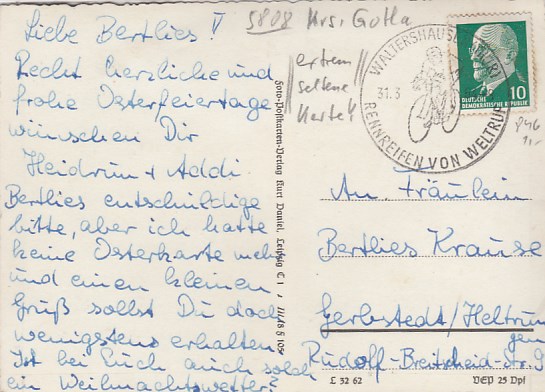 Liebe Bertlies!
Recht herzliche und
frohe Osterfeiertage
wünschen Dir
Heidrun + Addi
Bertlies entschuldige
bitte, aber ich hatte
keine Osterkarte mehr
und einen kleinen
Gruß sollst Du doch
wenigstens erhalten.
Ist bei Euch auch solch
ein Weihnachtswetter?
5808 Krs. Gotha
extrem
seltene
Karte!
WALTERSHAUSEN (THÜR)
31.3
RENNREIFEN VON WELTRUF
10
DEUTSCHE
DEMOKRATISCHE REPUBLIK
Foto-Postkarten-Verlag Kurt Daniel, Leipzig C 1
An Fräulein
Bertlies Krause
Gerbstedt/Heltrun
gen
Rudolf-Breitscheid-Str. 9
L 32 62
VEP 25 Dpf